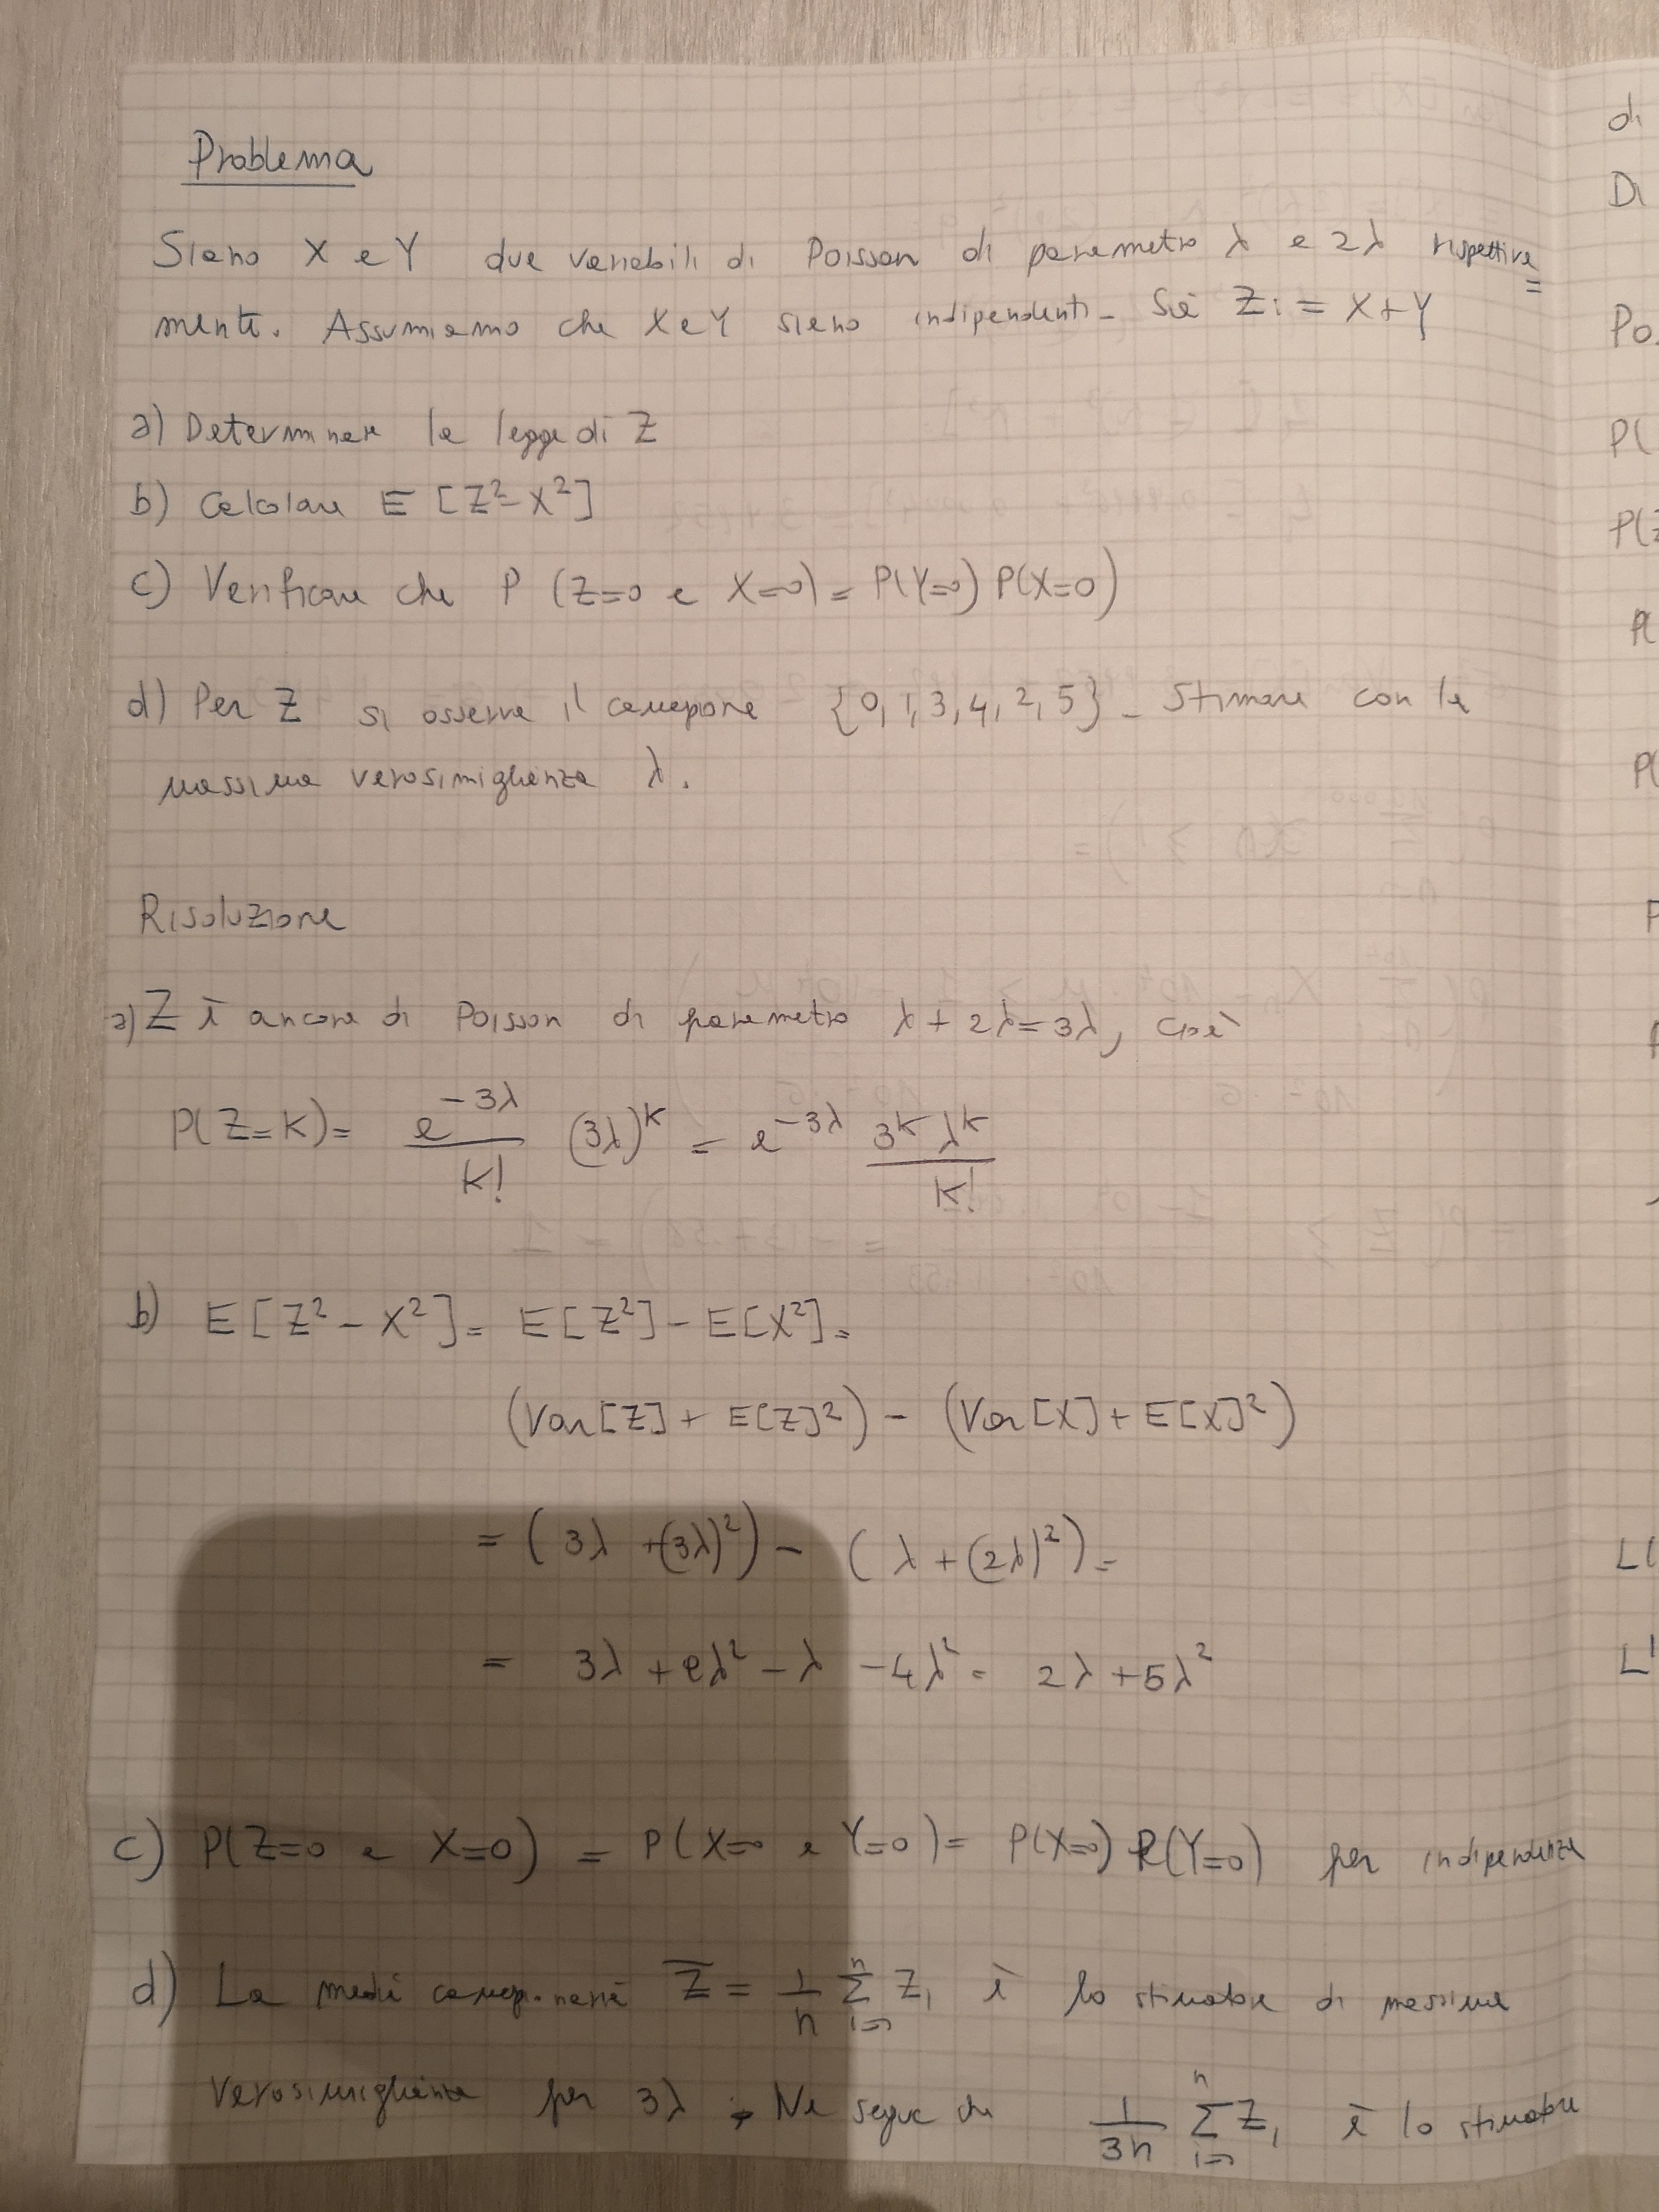 Problema
Siano X e Y due variabili di Poisson di parametro λ e 2λ rispettiva=
mente. Assumiamo che X e Y siano indipendenti. Sia Z := X+Y
a) Determinare la legge di Z
b) Calcolare E [Z²-X²]
c) Verificare che P (Z=0 e X=0) = P(Y=0) P(X=0)
d) Per Z si osserva il campione {0,1,3,4,2,5}. Stimare con la
massima verosimiglianza λ.
Risoluzione
a) Z è ancora di Poisson di parametro λ+2λ=3λ, cioè
P(Z=K)= e^{-3λ}/K! (3λ)^K = e^{-3λ} 3^K λ^K/K!
b) E[Z²-X²]= E[Z²]-E[X²]=
(Var[Z]+E[Z]²)-(Var[X]+E[X]²)
= (3λ+(3λ)²)-(λ+(2λ)²)=
= 3λ+9λ²-λ-4λ²= 2λ+5λ²
c) P(Z=0 e X=0) = P(X=0 e Y=0)= P(X=0) P(Y=0) per indipendenza
d) La media campionaria Z̄ = 1/n Σ_{i=1}^n Z_i è lo stimatore di massima
verosimiglianza per 3λ. Ne segue che 1/3n Σ_{i=1}^n Z_i è lo stimatore
di
Di
Po
P(
P(Z
P(
P(
P
L(
L'